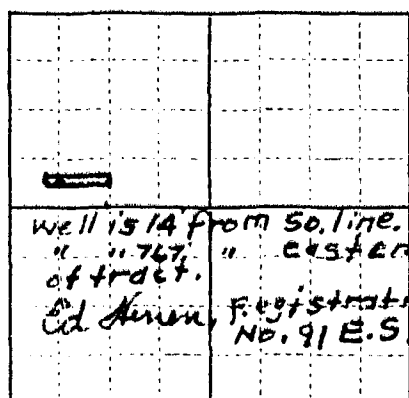 well is 14' from So. line.
" " 767' " eastern
of tract.
Ed Herren, Registrati
No. 91 E.S.